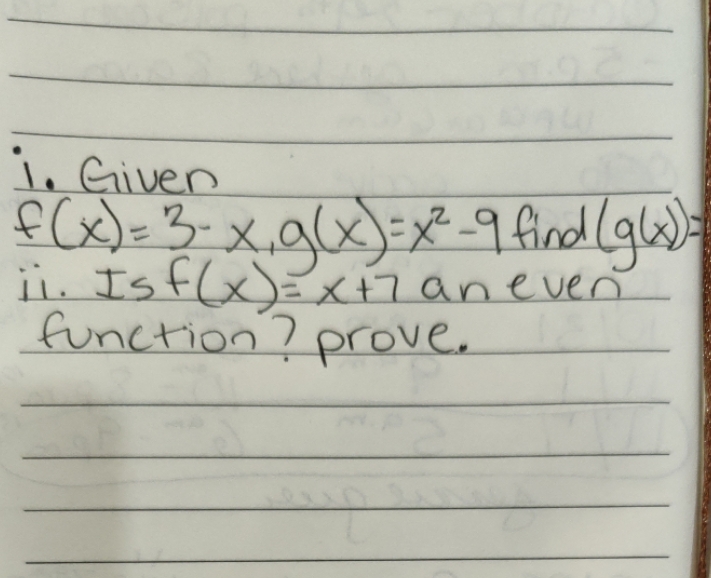 i. Given
f(x) = 3 - x, g(x) = x² - 9 find (g(x)) =
ii. Is f(x) = x + 7 an even
function? prove.